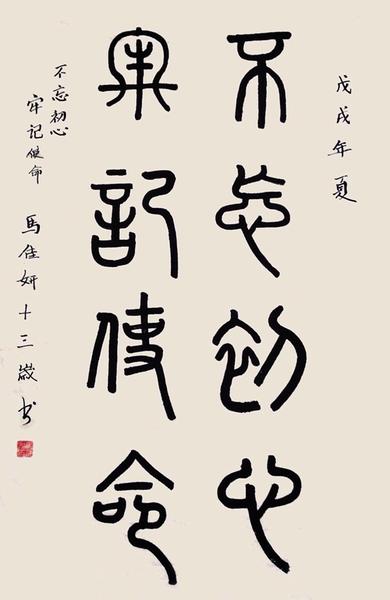 戊戌年夏
不忘初心
牢记使命
不忘初心
牢记使命
馬佳妍十三歲书